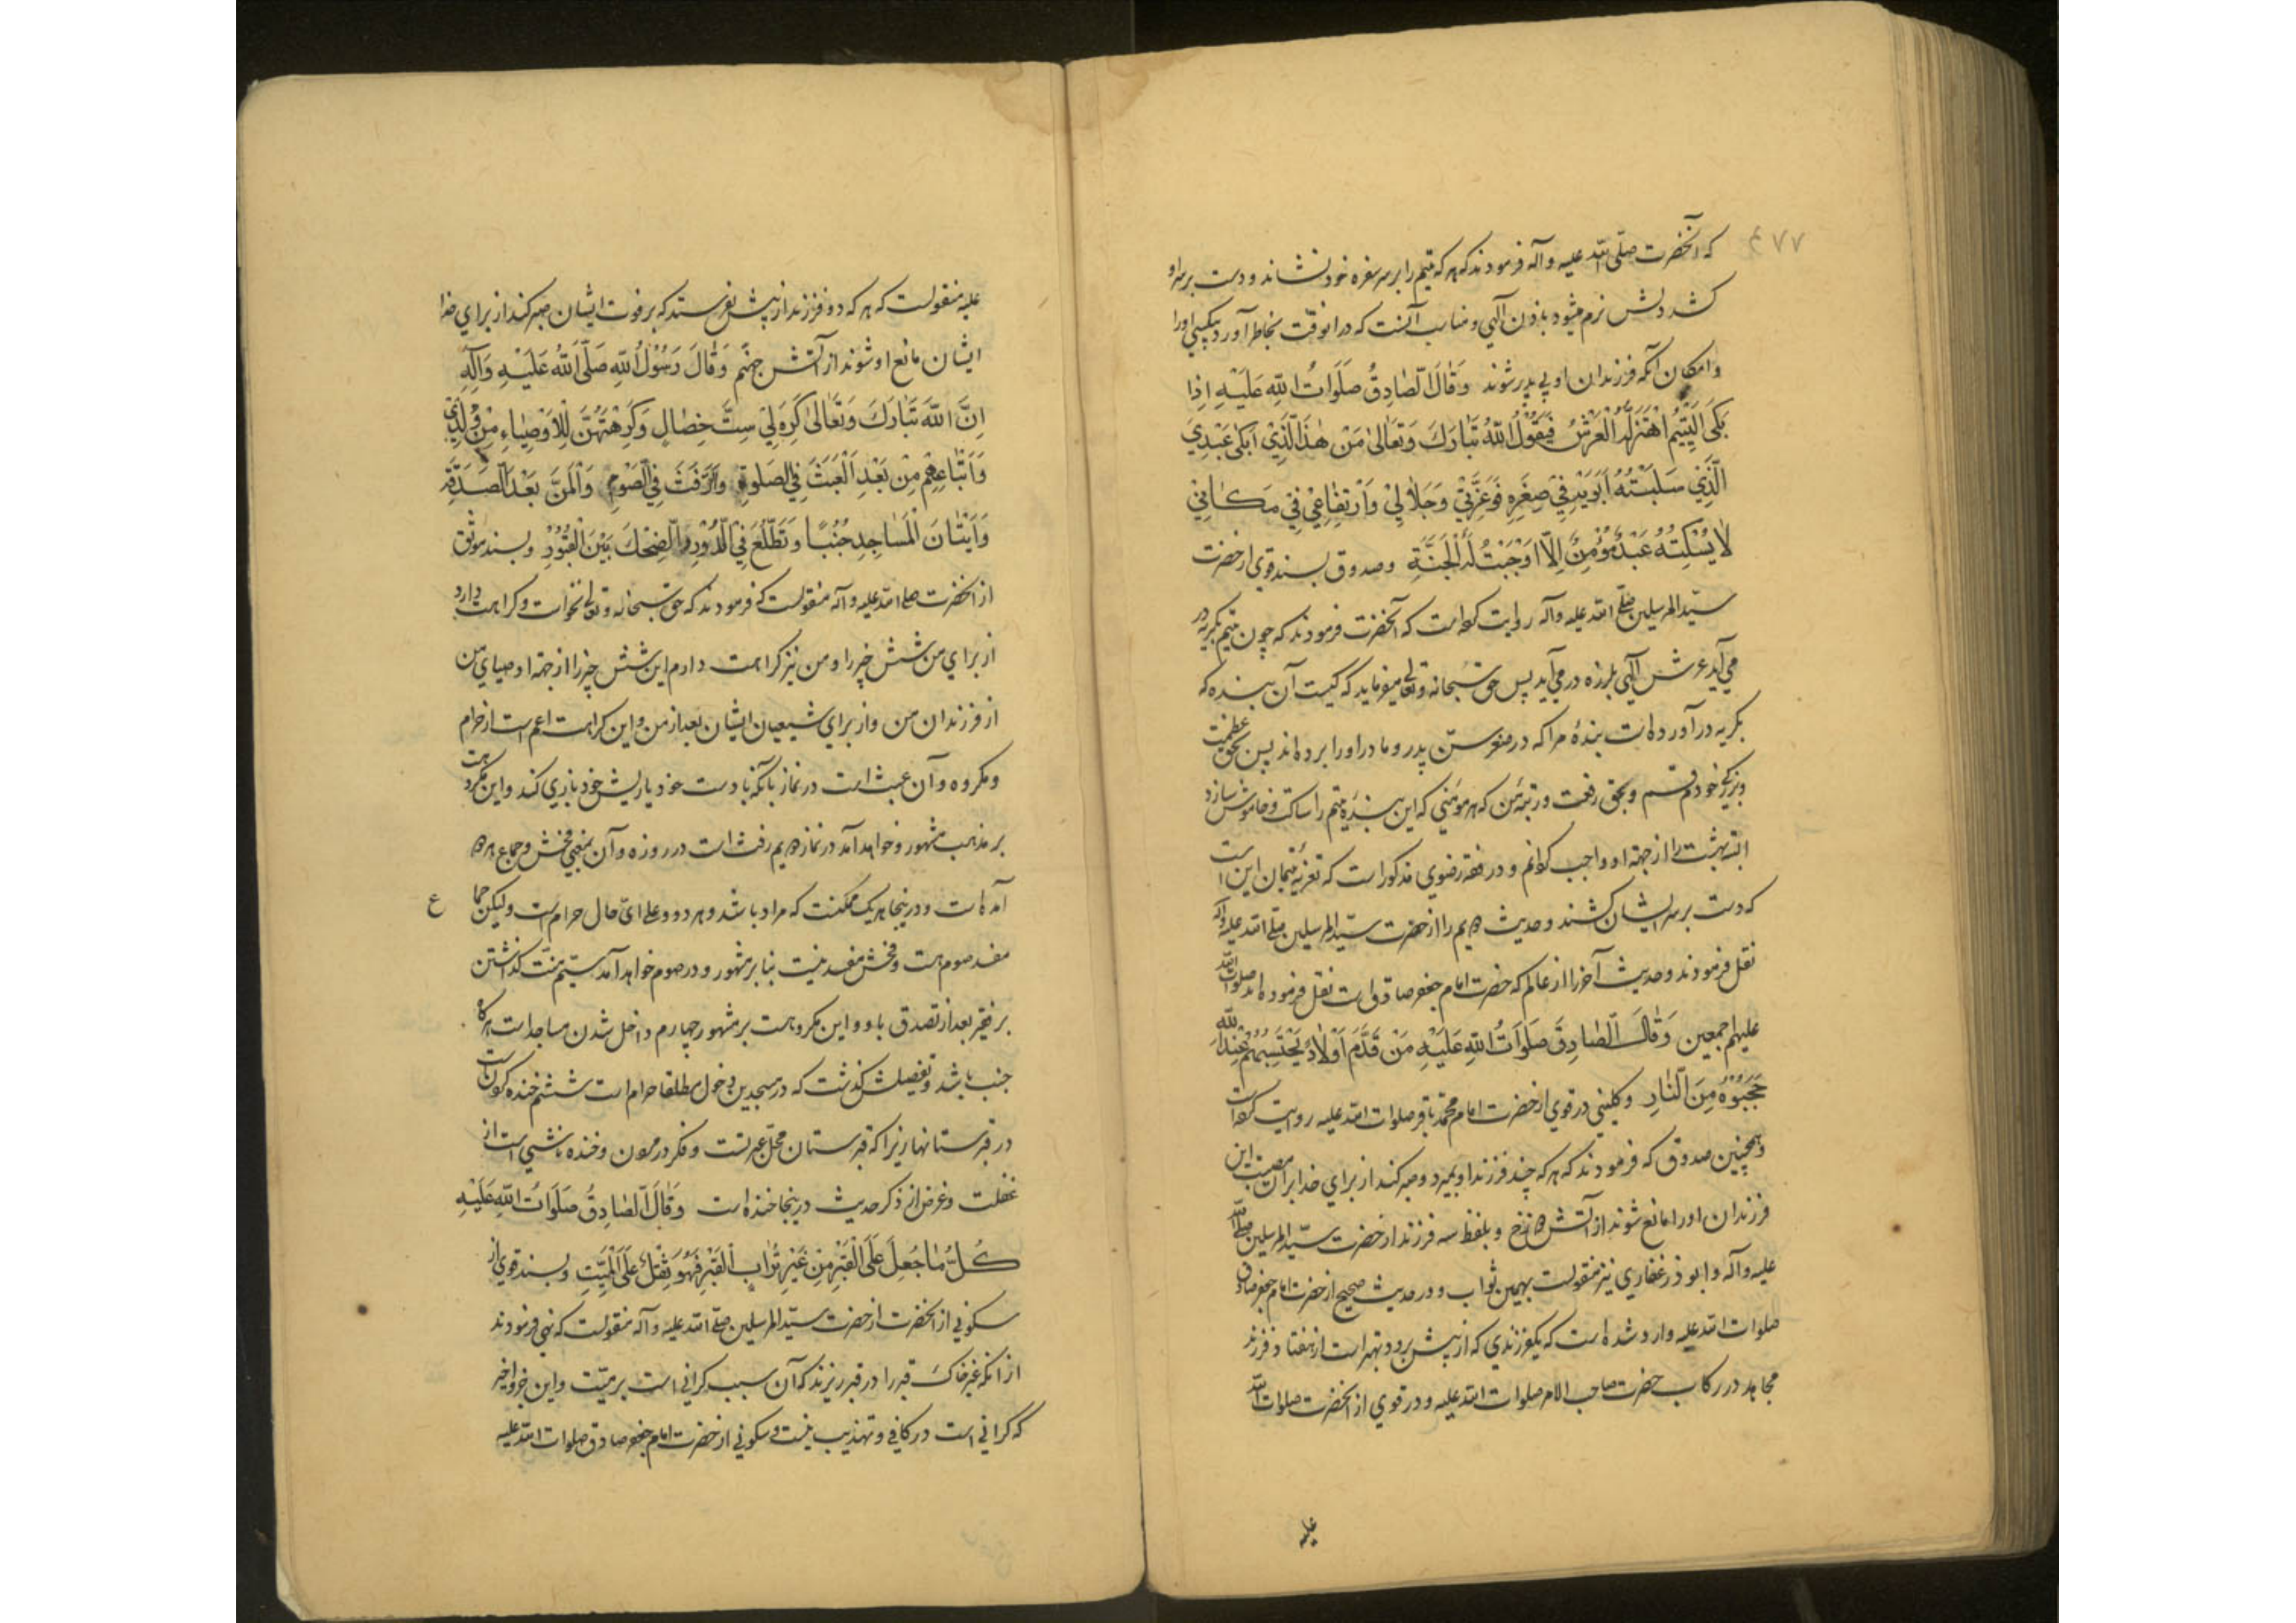 ۴۷۷
که آنحضرت صلّی الله علیه و آله فرمودند که هر که یتیم را بر سر سفره خود نشاند و دست بر سر او
کشد دلش نرم میشود باذن آلهی و مناسب آنست که در انوقت بخاطر آورد بیکسی او را
و امکان آنکه فرزندان او بی پدر شوند وَقٰالَ الصّٰادِقُ صَلَوٰاتُ اللهِ عَلَیْهِ اِذٰا
بَکَی الْیَتیٖمُ اهْتَزَّلَهُ الْعَرْشُ فَیَقُوْلُ اللهُ تَبٰارَكَ وَتَعٰالیٰ مَنْ هٰذَا الَّذِیْ اَبْکیٰ عَبْدِیَ
الَّذِیْ سَلَبْتُهُ اَبَوَیْهِ فِیْ صِغَرِهِ فَوَعِزَّتِیْ وَجَلاٰلِیْ وَارْتِفٰاعِیْ فِیْ مَکٰانِیْ
لاٰ یُسْکِتُهُ عَبْدٌ مُؤْمِنٌ اِلاّٰ اَوْجَبْتُ لَهُ الْجَنَّةَ و صدوق بسند قوی از حضرت
سیّد المرسلین صلّی الله علیه و آله روایت کرده است که آنحضرت فرمودند که چون یتیم بگریه در
می آید عرش آلهی بلرزه در می آید پس حق سبحانه و تعالی میفرماید که کیست آن بنده که
بگریه در آورده است بندهٔ مرا که در صغر سنّ پدر و مادر او را برده اند پس بحق عظمت
و بزرگی خودم قسم و بحق رفعت و رتبهٔ من که هر مؤمنی که این بندهٔ یتیم را ساکت و خاموش سازد
البته بهشت را از جهة او واجب کردانم و در فقه رضوی مذکور است که تعزیهٔ یتیمان این است
که دست بر سر ایشان کشند و حدیث دویم را از حضرت سیّد المرسلین صلّی الله علیه و آله
نقل فرمودند و حدیث آخر را از عالم که حضرت امام جعفر صادق است نقل فرموده اند صلوات الله
علیهم اجمعین وَقٰالَ الصّٰادِقُ صَلَوٰاتُ اللهِ عَلَیْهِ مَنْ قَدَّمَ اَوْلاٰدًا یَحْتَسِبُهُمْ عِنْدَ اللهِ
حَجَبُوْهُ مِنَ النّٰارِ و کلینی در قوی از حضرت امام محمّد باقر صلوات الله علیه روایت کرده است
و همچنین صدوق که فرمودند که هر که چند فرزند او بمیرد و صبر کند از برای خدا بر آن مصیبت این
فرزندان او را مانع شوند از آتش دوزخ و بلفظ سه فرزند از حضرت سیّد المرسلین صلّی الله
علیه و آله و ابوذر غفاری نیز منقولست بهمین ثواب و در حدیث صحیح از حضرت امام جعفر صادق
صلوات الله علیه وارد شده است که یکفرزندی که از پیش برود بهتر است از هفتاد فرزند
مجاهد در رکاب حضرت صاحب الامر صلوات الله علیه و در قوی از آنحضرت صلوات الله
علیه
علیه منقولست که هر که دو فرزند از پیش بفرستد که بر فوت ایشان صبر کند از برای خدا
ایشان مانع او شوند از آتش جهنم وَقٰالَ رَسُوْلُ اللهِ صَلَّی اللهُ عَلَیْهِ وَآلِهِ
اِنَّ اللهَ تَبٰارَكَ وَتَعٰالیٰ کَرِهَ لِیْ سِتَّ خِصٰالٍ وَکَرِهْتُهُنَّ لِلْاَوْصِیٰاءِ مِنْ وُلْدِیْ
وَاَتْبٰاعِهِمْ مِنْ بَعْدِیَ الْعَبَثَ فِی الصَّلوٰةِ وَالرَّفَثَ فِی الصَّوْمِ وَالْمَنَّ بَعْدَ الصَّدَقَةِ
وَاِتْیٰانَ الْمَسٰاجِدِ جُنُبًا وَتَطَلُّعَ فِی الدُّوْرِ وَالضِّحْكَ بَیْنَ الْقُبُوْرِ و بسند موثق
از آنحضرت صلی الله علیه و آله منقولست که فرمودند که حق سبحانه و تعالی نخواست و کراهت دارد
از برای من شش چیز را و من نیز کراهت دارم این شش چیز را از جهة اوصیای من
از فرزندان من و از برای شیعیان ایشان بعد از من و این کراهت اعم است از حرام
و مکروه و آن عبث است در نماز بآنکه با دست خود یا ریش خود بازی کند و این مکروهست
بر مذهب مشهور و خواهد آمد در نماز دویم رفث است در روزه و آن بمعنی فحش و جماع هر دو
آمده است و در ینجا هر یک ممکنست که مراد باشد و هر دو و علی ایّ حال حرام است و لیکن جماع
مفسد صوم است و فحش مفسد نیست بنا بر مشهور و در صوم خواهد آمد سیّم منّت کذاشتن
بر فقیر بعد از تصدق باو و این مکروهست بر مشهور چهارم داخل شدن مساجد است هرگاه
جنب باشد و تفصیلش گذشت که در مسجدین دخول مطلقا حرام است ششم خنده کردنست
در قبرستانها زیرا که قبرستان محلّ عبرتست و فکر در مردن و خنده ناشی است از
غفلت و غرض از ذکر حدیث در ینجا خنده است وَقٰالَ الصّٰادِقُ صَلَوٰاتُ اللهِ عَلَیْهِ
کُلُّ مٰا جُعِلَ عَلَی الْقَبْرِ مِنْ غَیْرِ تُرٰابِ الْقَبْرِ فَهُوَ ثِقْلٌ عَلَی الْمَیِّتِ و بسند قوی از
سکونی از آنحضرت از حضرت سیّد المرسلین صلّی الله علیه و آله منقولست که نهی فرمودند
از انکه غیر خاك قبر را در قبر ریزند که آن سبب کرانی است بر میّت و این جزو اخیر
که کرانی است در کافی و تهذیب نیست و سکونی از حضرت امام جعفر صادق صلوات الله علیه
ع